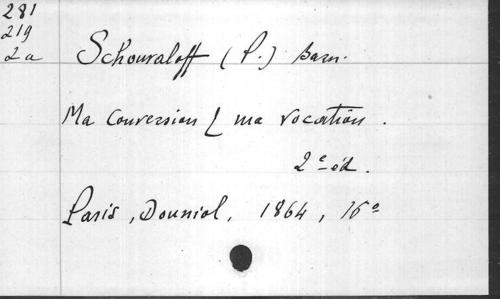 281
219
2a
Schouvaloff (P.) Barn.
Ma Conversion & ma vocation.
2e éd.
Paris, Douniol, 1864, 16°